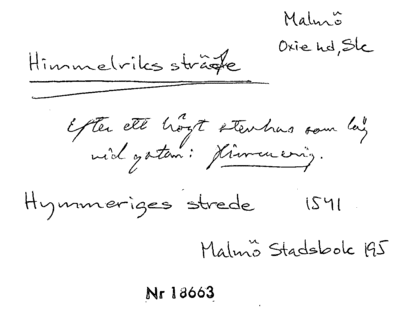 Malmö
Oxie hd, Sk
Himmelriks sträde
Efter ett högt stenhus som låg
vid gatan:
Hymmeriges strede 1541
Malmö Stadsbok 195
Nr 18663